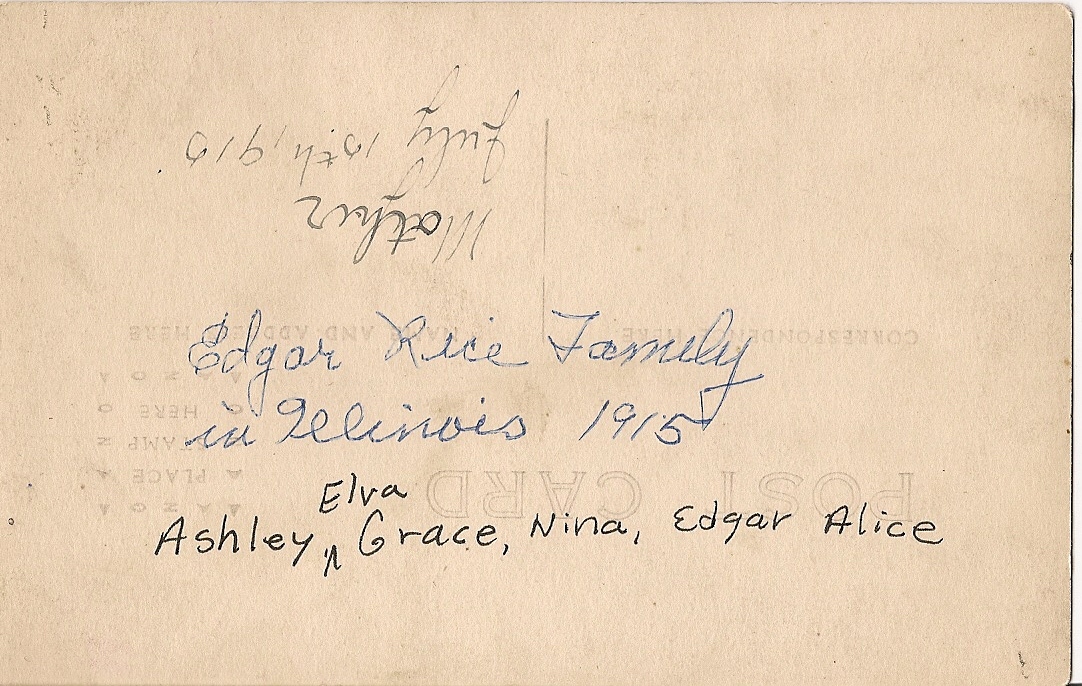 Mother
July 15th, 1915
CORRESPONDENCE HERE
NAME AND ADDRESS HERE
Edgar Rice Family
in Illinois 1915
Elva
Ashley, ^ Grace, Nina, Edgar Alice
POST CARD
AZO
PLACE
STAMP
HERE
AZO